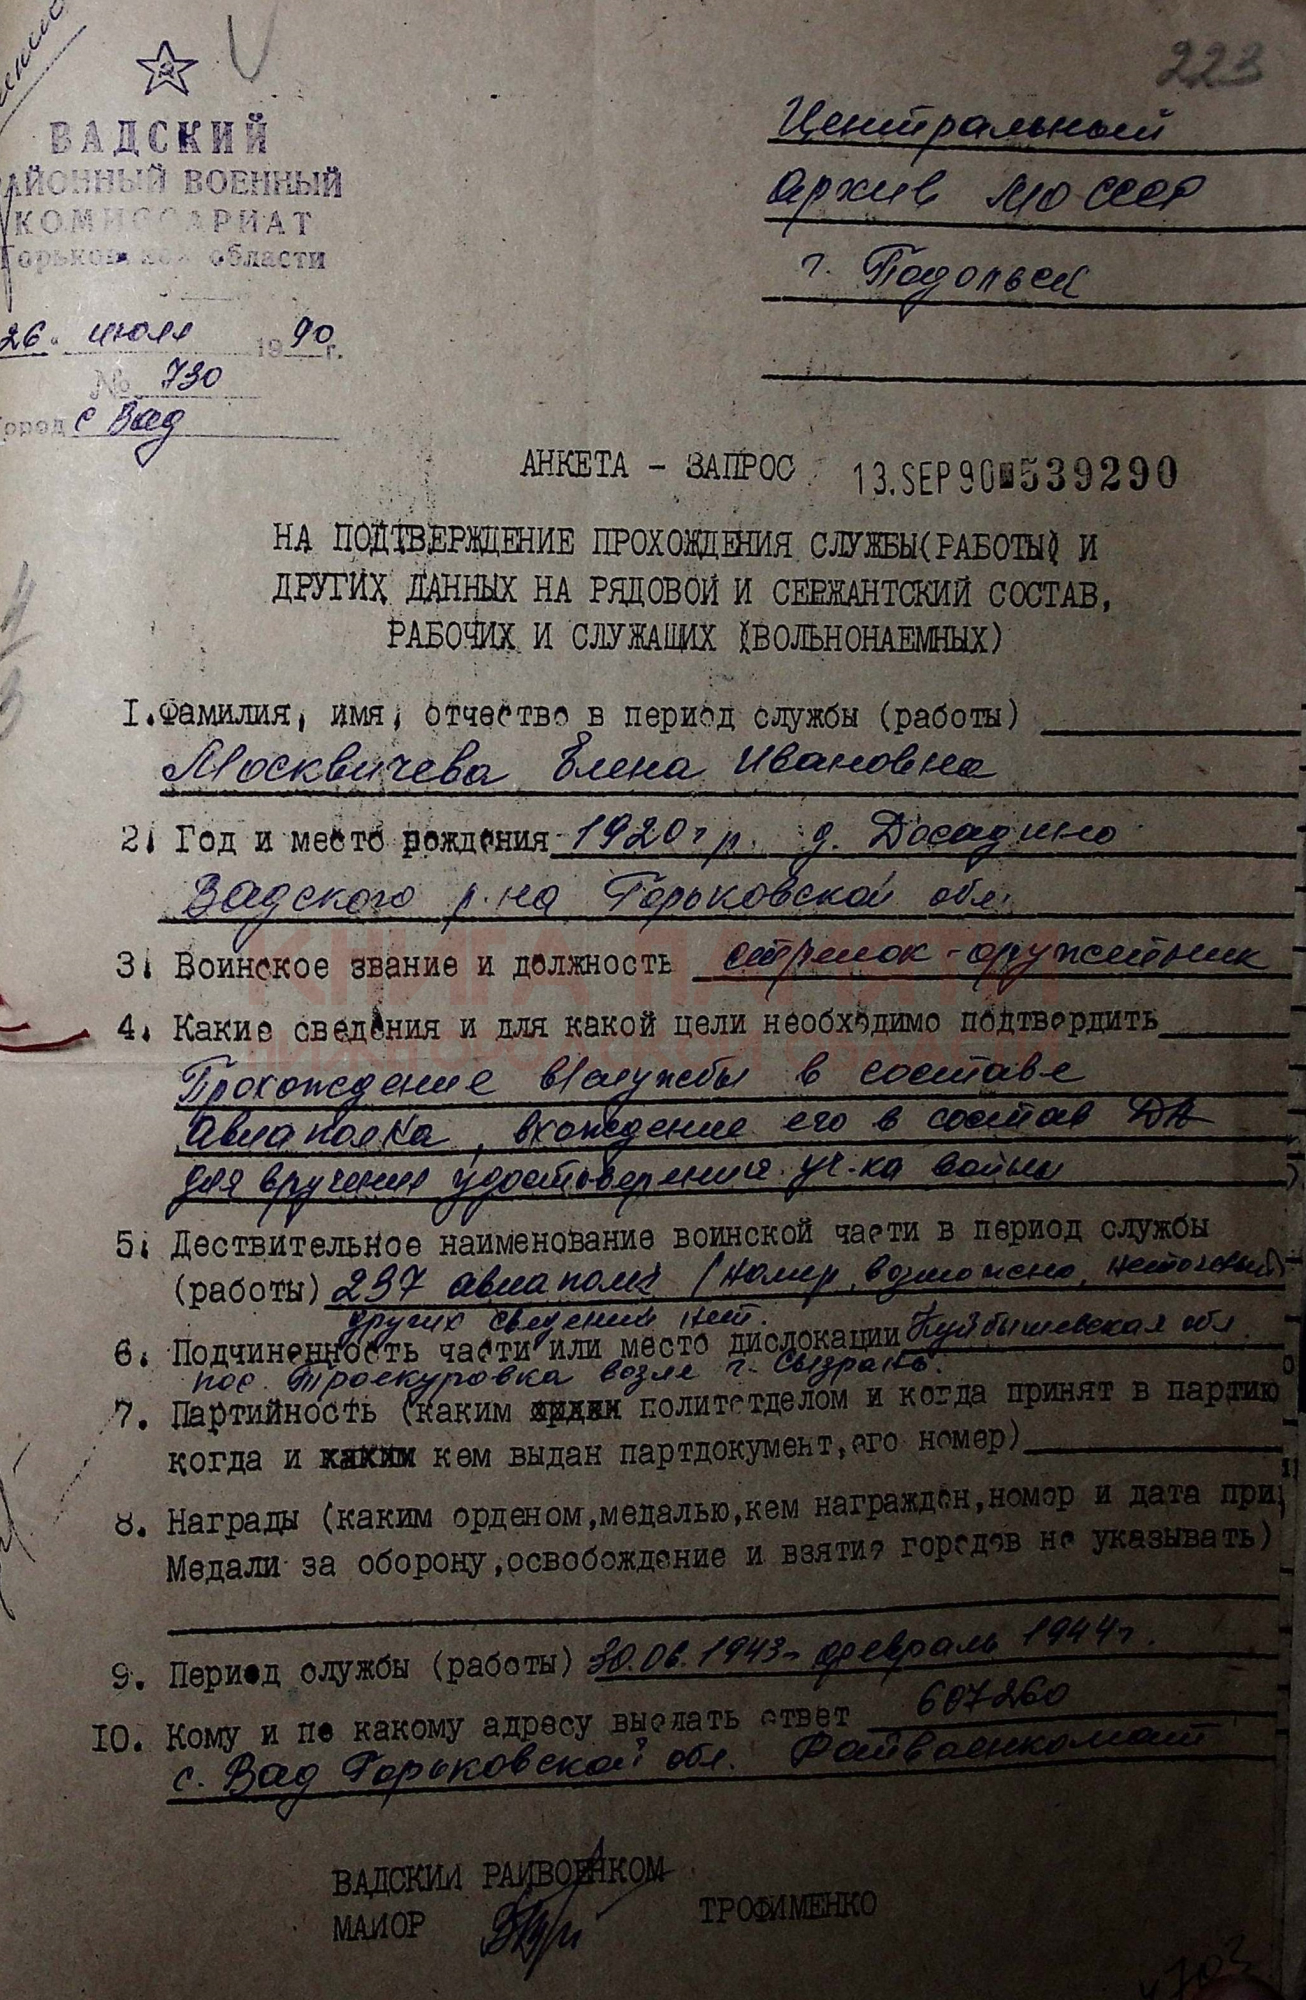 223
ВАДСКИЙ
РАЙОННЫЙ ВОЕННЫЙ
КОМИССАРИАТ
Горьковской области
26 июля 1990 г.
№ 730
город с Вад
Центральный
архив МО СССР
г. Подольск
АНКЕТА - ЗАПРОС 13.SEP90 539290
НА ПОДТВЕРЖДЕНИЕ ПРОХОЖДЕНИЯ СЛУЖБЫ(РАБОТЫ) И
ДРУГИХ ДАННЫХ НА РЯДОВОЙ И СЕРЖАНТСКИЙ СОСТАВ,
РАБОЧИХ И СЛУЖАЩИХ (ВОЛЬНОНАЕМНЫХ)
1.Фамилия, имя, отчество в период службы (работы)
Москвичева Елена Ивановна
2. Год и место рождения 1920 г р. д. Досадино
Вадского р-на Горьковской обл.
3. Воинское звание и должность стрелок-оружейник
4. Какие сведения и для какой цели необходимо подтвердить
Прохождение в/службы в составе
авиаполка, вхождение его в состав ДА
для вручения удостоверения уч-ка войны
5. Дествительное наименование воинской части в период службы
(работы) 237 авиаполк (номер, возможно, неточный)
других сведений нет.
6. Подчиненность части или место дислокации Куйбышевская обл
пос. Троекуровка возле г. Сызрань.
7. Партийность (каким политотделом и когда принят в партию
когда и кем выдан партдокумент,его номер)
8. Награды (каким орденом,медалью,кем награжден,номер и дата при
Медали за оборону,освобождение и взятие городов не указывать)
9. Период службы (работы) 30.06.1943- февраль 1944г.
10. Кому и по какому адресу выслать ответ 607260
с. Вад Горьковской обл. Райвоенкомат
ВАДСКИЙ РАЙВОЕНКОМ
МАЙОР ТРОФИМЕНКО
КНИГА ПАМЯТИ
НИЖЕГОРОДСКОЙ ОБЛАСТИ